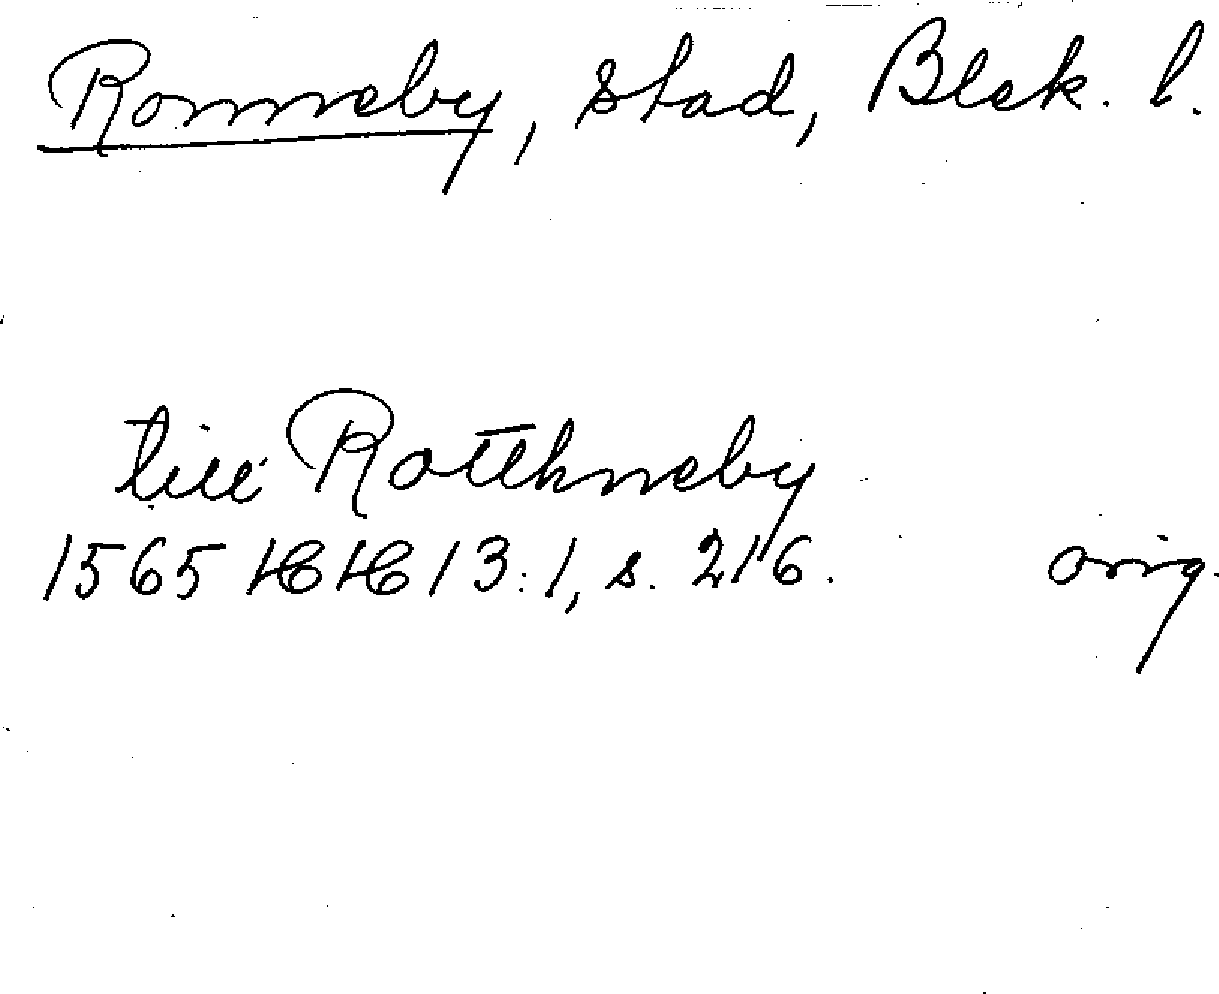 Ronneby, stad, Blek. l.
till Rotthneby
1565 HH 13:1, s. 216. orig.